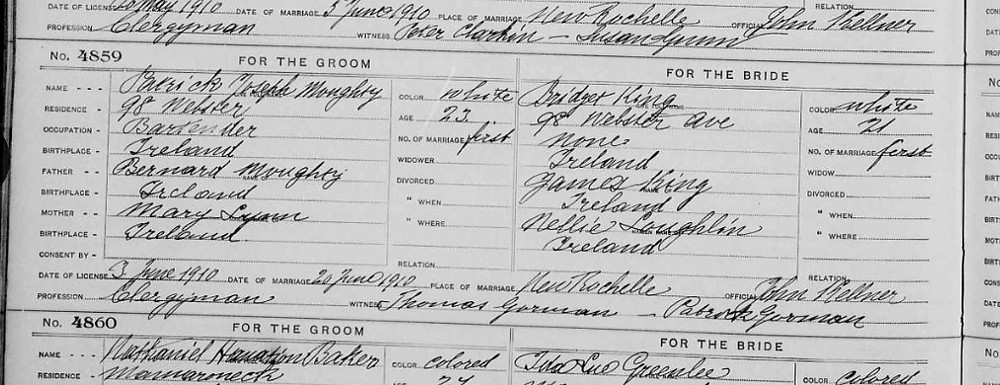 DATE OF LICENSE 20 May 1910 DATE OF MARRIAGE 5 June 1910 PLACE OF MARRIAGE New Rochelle OFFICIAL John Kellner
RELATION
PROFESSION Clergyman WITNESS Peter Clarkin - Susan Gunn
No. 4859 FOR THE GROOM FOR THE BRIDE
NAME Patrick Joseph Moughty COLOR white Bridget King COLOR white
RESIDENCE 98 Webster AGE 23 98 Webster ave AGE 21
OCCUPATION Bartender NO. OF MARRIAGE first none NO. OF MARRIAGE first
BIRTHPLACE Ireland WIDOWER Ireland WIDOW
FATHER Bernard Moughty DIVORCED James King DIVORCED
BIRTHPLACE Ireland " WHEN Ireland " WHEN
MOTHER Mary Lynn " WHERE Nellie Loughlin " WHERE
BIRTHPLACE Ireland Ireland
CONSENT BY RELATION RELATION
DATE OF LICENSE 3 June 1910 DATE OF MARRIAGE 20 June 1910 PLACE OF MARRIAGE New Rochelle OFFICIAL John Kellner
PROFESSION Clergyman WITNESS Thomas Gorman - Patrick Gorman
No. 4860 FOR THE GROOM FOR THE BRIDE
NAME Nathaniel Baker COLOR colored Ida Greenlee COLOR colored
RESIDENCE Mamaroneck